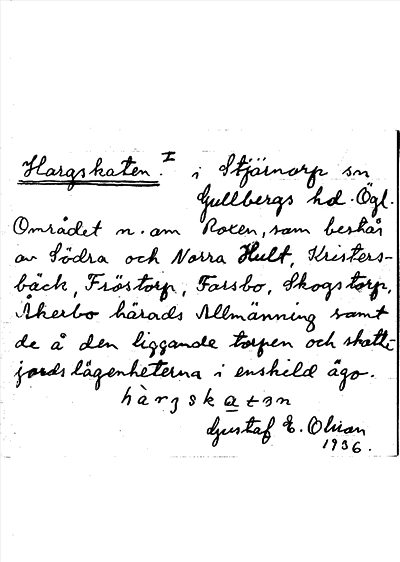 Hargskaten. I i Stjärnorp sn
Gullbergs hd. Ögl.
Området n. om Roxen, som består
av Södra och Norra Hult, Kristers-
bäck, Fröstorp, Farsbo, Skogstorp,
Åkerbo härads Allmänning samt
de å den liggande torpen och skatte
jordslägenheterna i enskild ägo.
hàrgskatən
Gustaf E. Olson
1936.